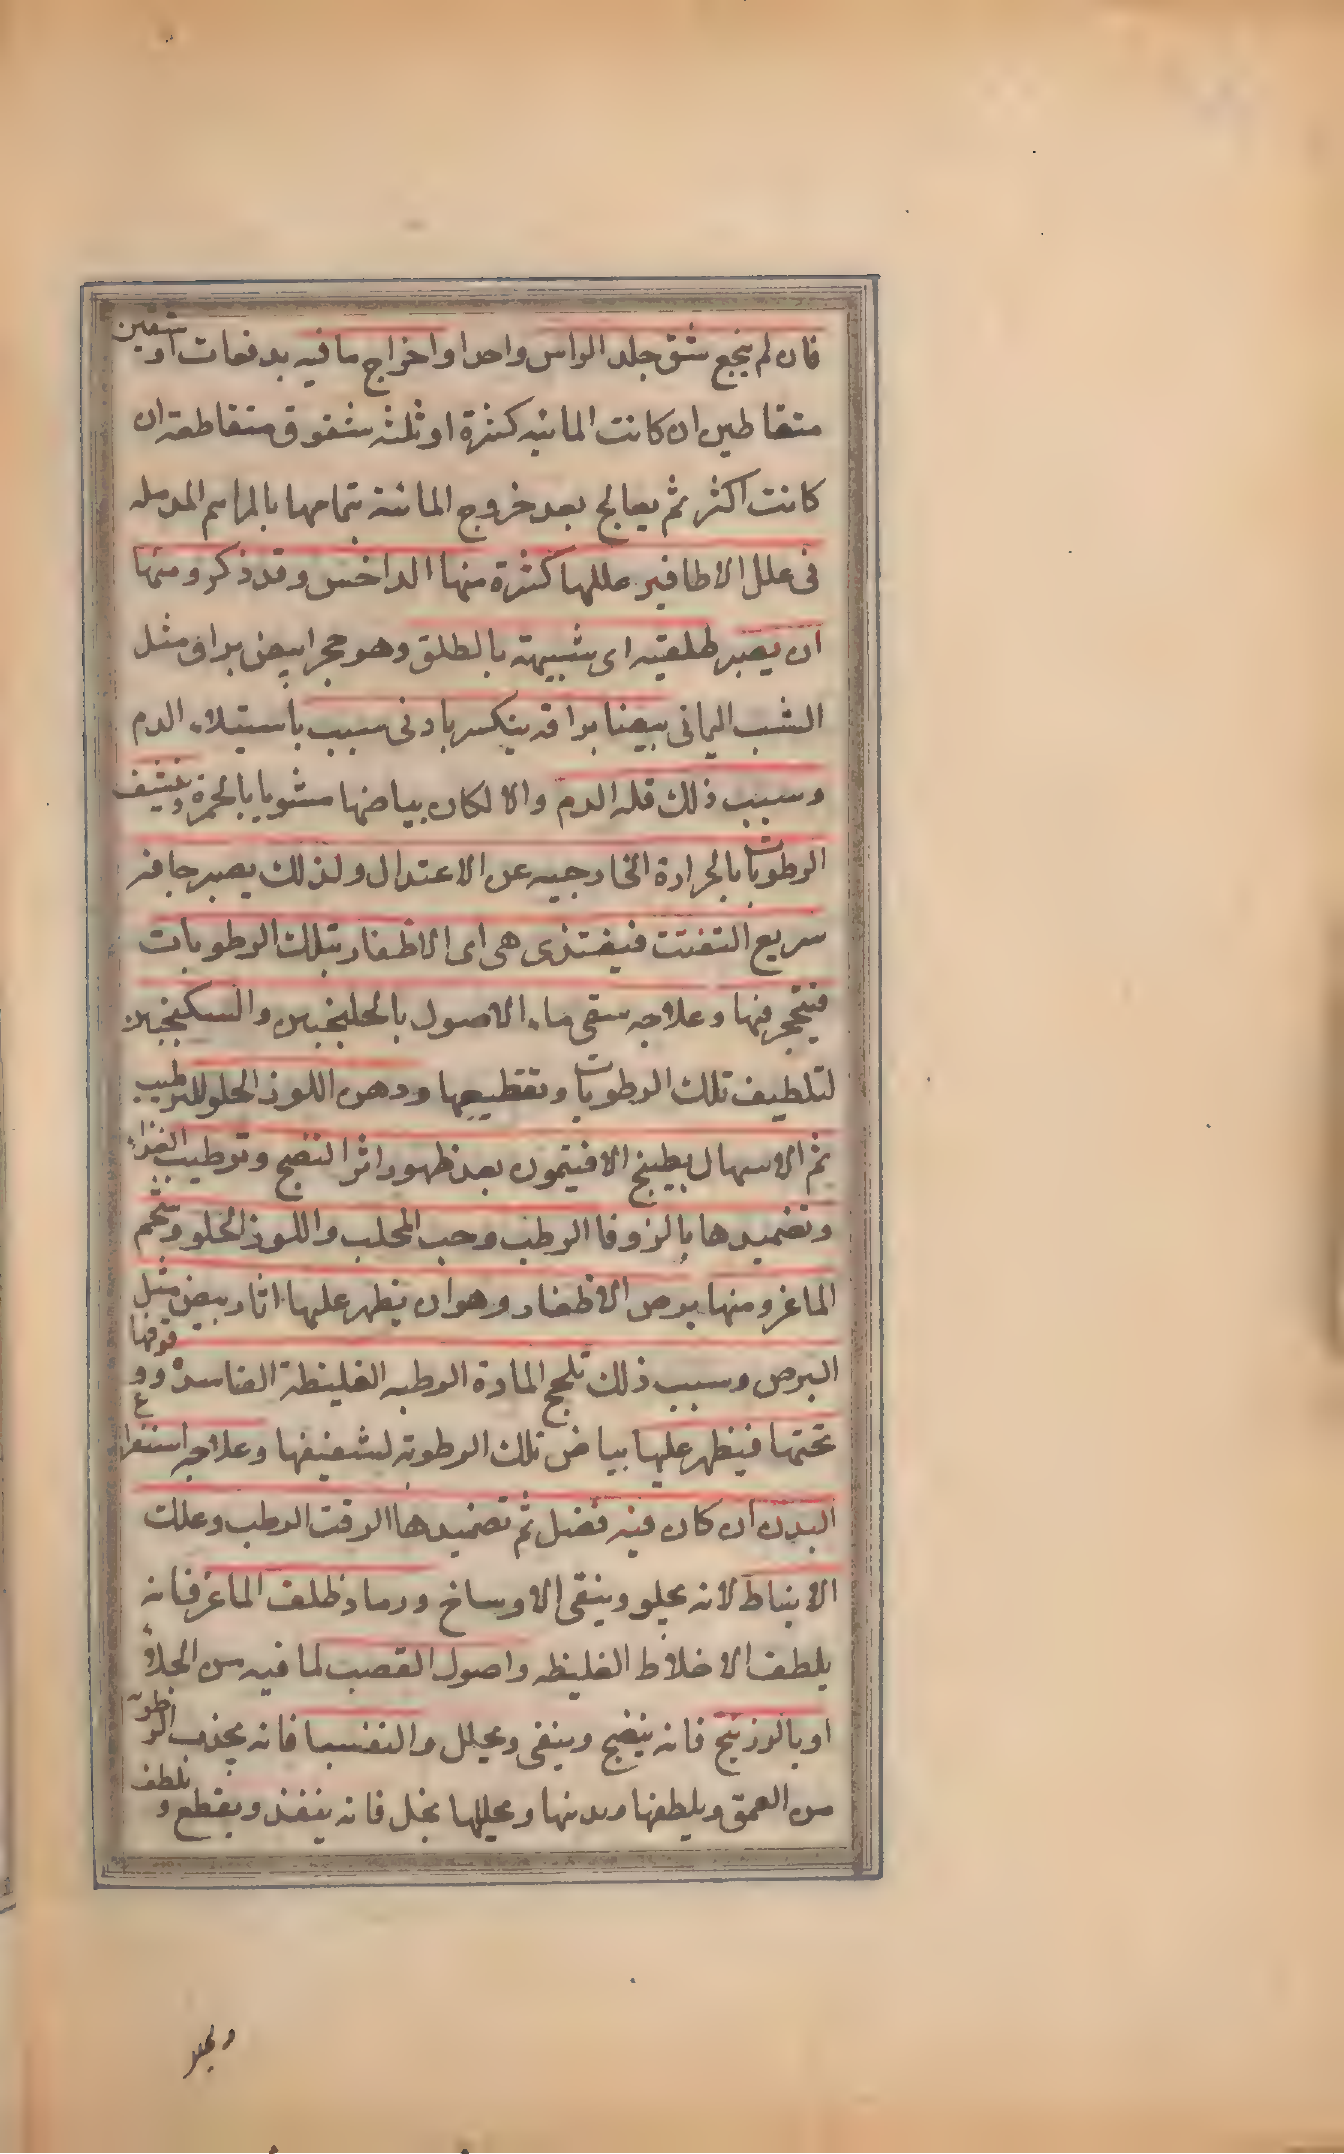 فان لم ينجع شق جلد الراس واحدا واخراج ما فيه بدفعات او شقين
متقاطين ان كانت المائيه كثيرة او ثلثه شقوق متقاطعة ان
كانت اكثر ثم يعالج بعد خروج المائية بتمامها بالمراهم المدمله
فى علل الاظافير عللها كثيرة منها الداخس وقد ذكر ومنها
ان يصير طلقيه اى شبيهة بالطلق وهو حجر ابيض براق مثل
الشب اليمانى بيضا براقه ينكسر بادنى سبب باستيلاء الدم
وسبب ذلك قله الدم والا لكان بياضها مشوبا بالحمرة وتنشيف
الرطوبات بالحرارة الخارجيه عن الاعتدال ولذلك يصير جافه
سريع التفتت فيغتذى هى اى الاظفار بتلك الرطوبات
فيتحجر فيها وعلاجه سقى ماء الاصول بالجلنجبين والسكنجبين
لتلطيف تلك الرطوبات وتقطيعها ودهن اللوز الحلو للترطيب
ثم الاسهال بطبيخ الافتيمون بعد ظهور اثر النضج وترطيب الغذاء
وتضميدها بالزوفا الرطب وحب المحلب واللوز الحلو وشحم
الماعز ومنها برص الاظفار وهو ان يظهر عليها اثار بيض مثل
البرص وسبب ذلك تلحج المادة الرطبه الغليظة الفاسدة فوقها و
تحتها فيظهر عليها بياض تلك الرطوبة لشفيفها وعلاجه استفراغ
البدن ان كان فيه فضل ثم تضميدها الزفت الرطب وعلك
الانباط لانه يجلو وينقى الاوساخ ورماد ظلف الماعز فانه
يلطف الاخلاط الغليظه واصول القصب لما فيه من الجلاء
او بالزرنيخ فانه ينضج وينقى ويحلل والنفسيا فانه يجذب الرطوبه
من العمق ويلطفها ويحللها بخل فانه ينفذ ويقطع و يلطف